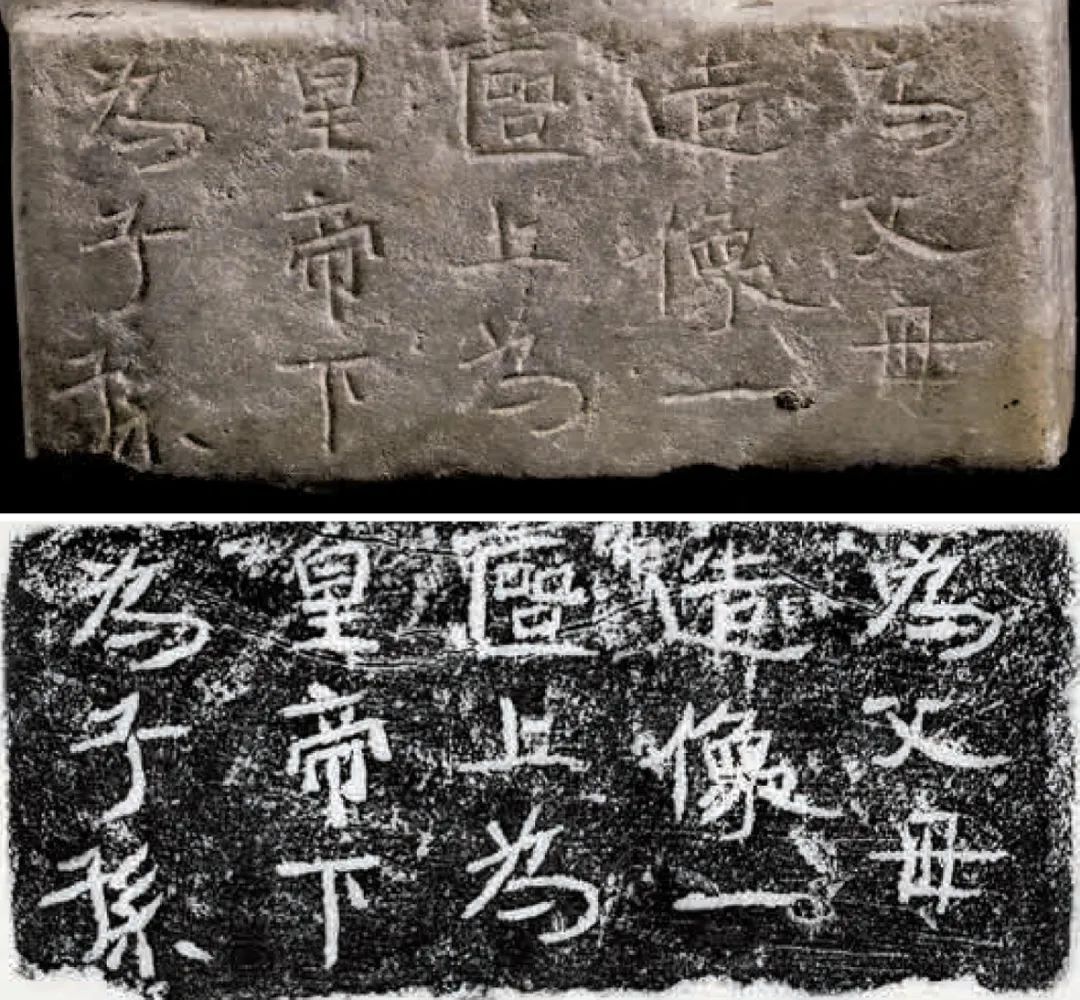 為父母
造像一
區上為
皇帝下
為子孫
為父母
造像一
區上為
皇帝下
為子孫